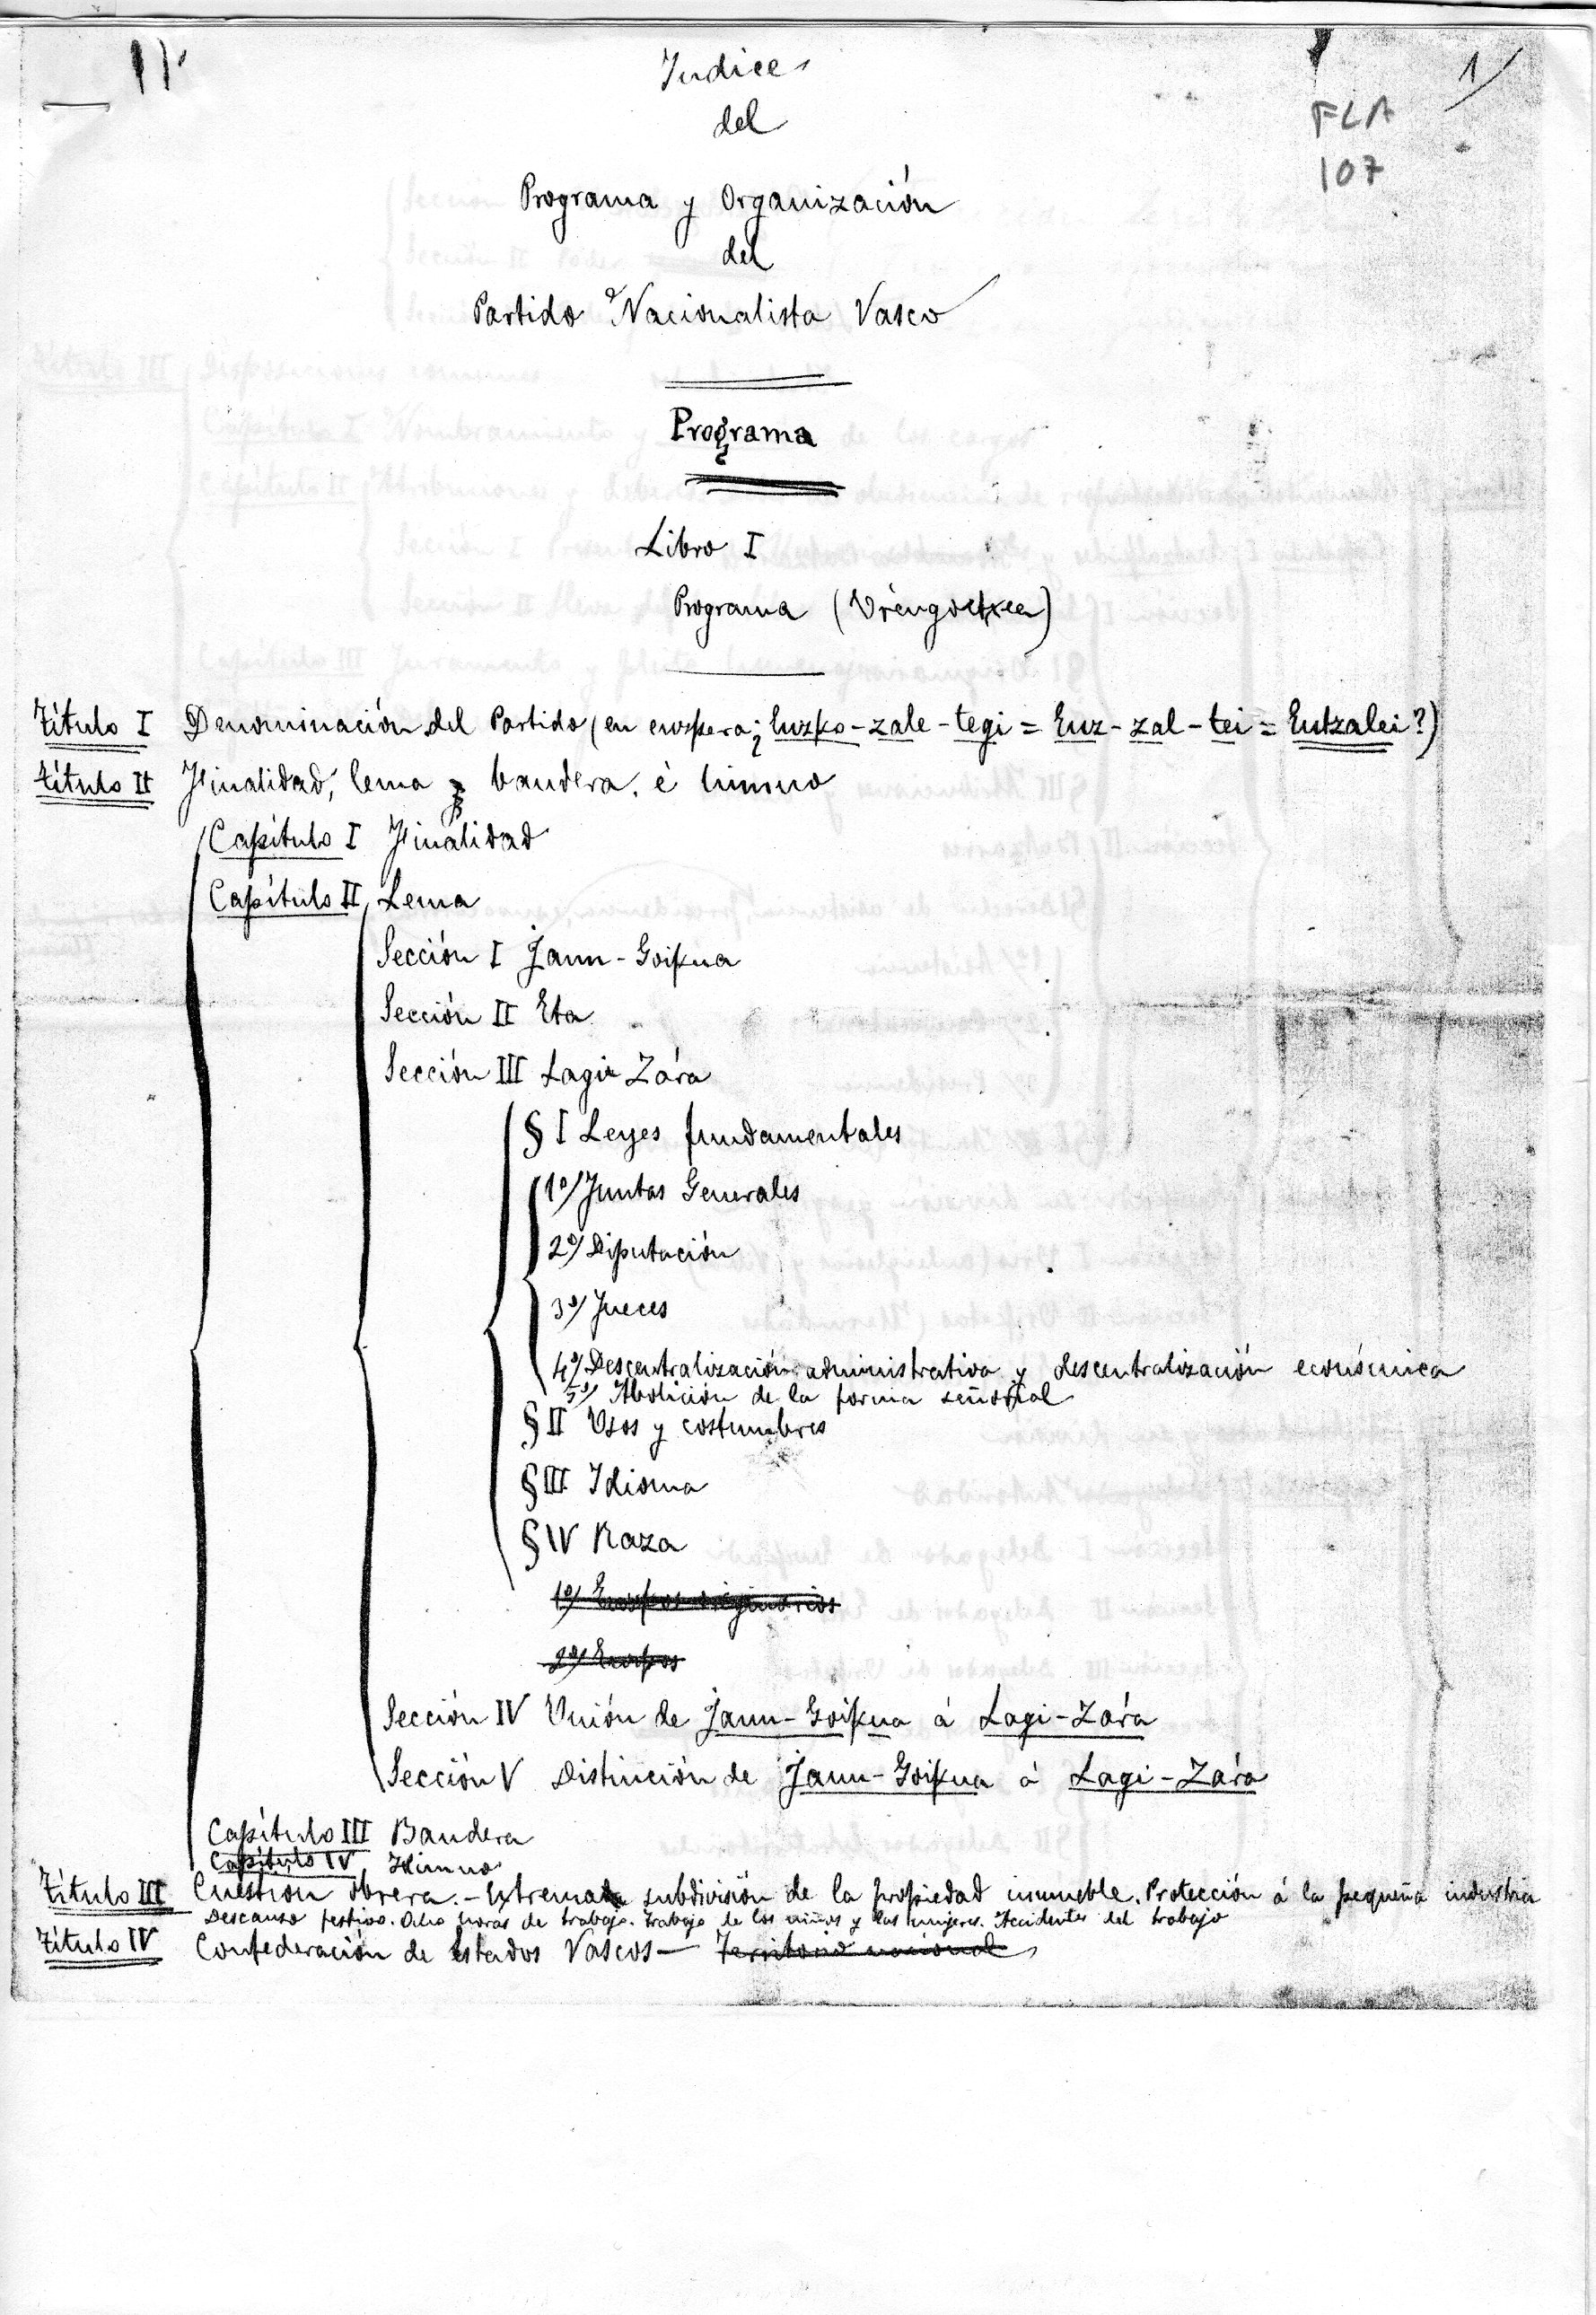 Indice
1/
del
FLA
107
Programa y Organización
del
Partido Nacionalista Vasco
Programa
Libro I
Programa
Título I Denominación del Partido (en euzkera; Euzko-zale-tegi = Euz-zal-tei = Eutzalei?)
Título II Finalidad, lema bandera. é himno
Capítulo I Finalidad
Capítulo II Lema
Sección I Jaun-Goikua
Sección II Eta
Sección III Lagi Zára
§ I Leyes fundamentales
1º/ Juntas Generales
2º/ Diputación
3º/ Jueces
4º/ Descentralización administrativa y descentralización económica
5º/ Abolición de la forma señorial
§ II Usos y costumbres
§ III Idioma
§ IV Raza
1º/ Euzkos originarios
2º/ Euzkos
Sección IV Unión de Jaun-Goikua á Lagi-Zára
Sección V Distinción de Jaun-Goikua á Lagi-Zára
Capítulo III Bandera
Capítulo IV Himno
Título III Cuestion obrera.- Extremada subdivisión de la propiedad inmueble. Protección á la pequeña industria
Descanso festivo. Ocho horas de trabajo. Trabajo de los niños y las mujeres. Accidentes del trabajo
Título IV Confederación de Estados Vascos - Territorio nacional